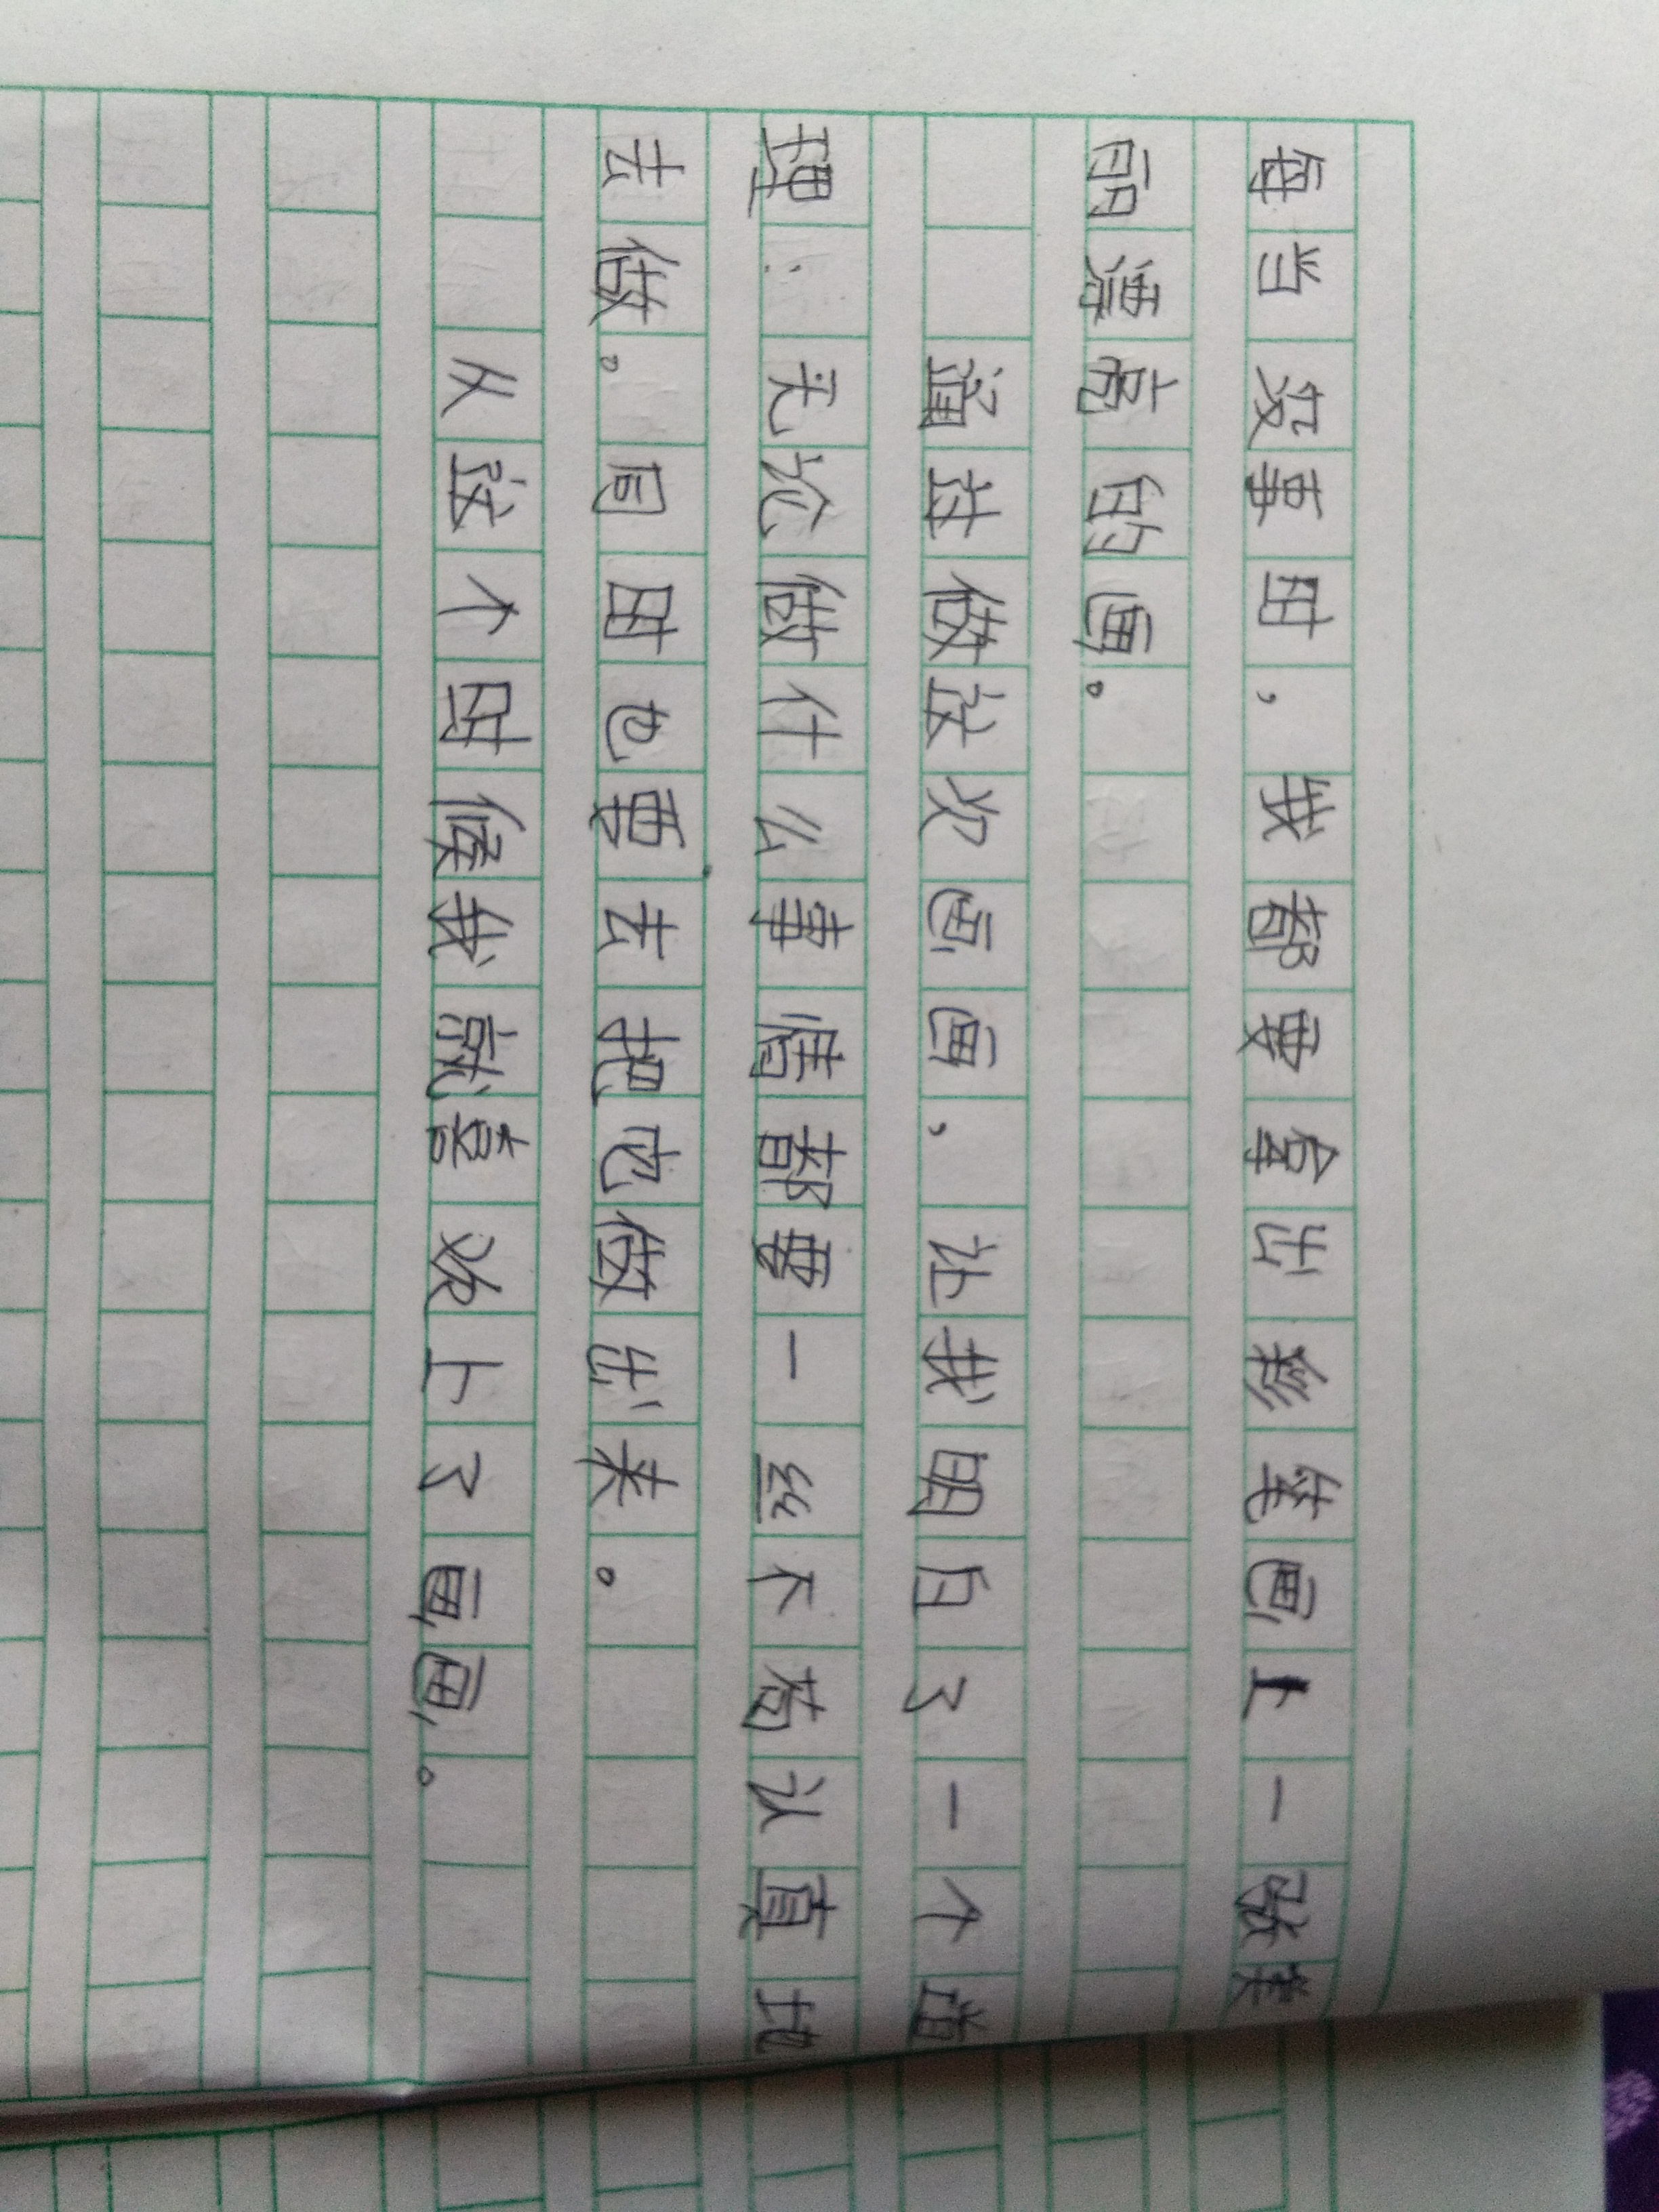 每当没事时，我都要拿出彩笔画上一张美
丽漂亮的画。
通过做这次画画，让我明白了一个道
理：无论做什么事情都要一丝不苟认真地
去做。同时也要去把它做出来。
从这个时候我就喜欢上了画画。